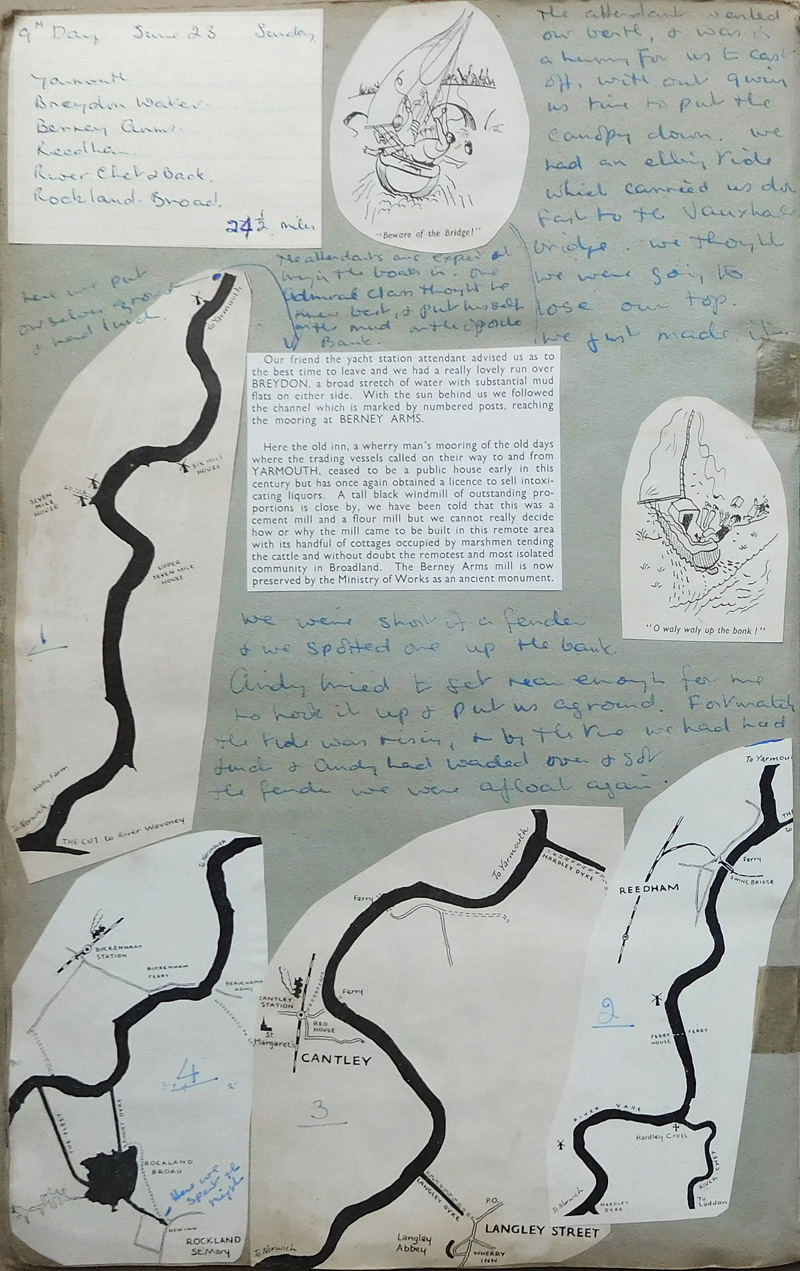 9th Day June 23 Sunday
Yarmouth
Breydon Water.
Berney Arms.
Reedham.
River Chet & Back.
Rockland Broad.
24½ miles
"Beware of the Bridge!"
The attendant wanted
our berth, & was in
a hurry for us to cast
off, with out giving
us time to put the
canopy down. We
had an ebbing tide
which carried us down
fast to the Vauxhall
bridge. We thought
we were going to
lose our top.
We just made it.
here we put
ourselves aground
& had lunch.
The attendants are expert at
the boats in. one
Admiral Class thought he
knew best, & put himself
on the mud on the opposite
Bank.
Our friend the yacht station attendant advised us as to
the best time to leave and we had a really lovely run over
BREYDON, a broad stretch of water with substantial mud
flats on either side. With the sun behind us we followed
the channel which is marked by numbered posts, reaching
the mooring at BERNEY ARMS.
Here the old inn, a wherry man's mooring of the old days
where the trading vessels called on their way to and from
YARMOUTH, ceased to be a public house early in this
century but has once again obtained a licence to sell intoxi-
cating liquors. A tall black windmill of outstanding pro-
portions is close by, we have been told that this was a
cement mill and a flour mill but we cannot really decide
how or why the mill came to be built in this remote area
with its handful of cottages occupied by marshmen tending
the cattle and without doubt the remotest and most isolated
community in Broadland. The Berney Arms mill is now
preserved by the Ministry of Works as an ancient monument.
"O waly waly up the bank!"
We were short of a fender
& we spotted one up the bank.
Andy tried to get near enough for me
to hook it up & put us aground. Fortunately
the tide was rising, & by the time we had had
lunch & Andy had waded over & got
the fender we were afloat again.
To Yarmouth
SIX MILE
HOUSE
SEVEN
MILE
HOUSE
UPPER
SEVEN MILE
HOUSE
1
Holly Farm
To Norwich
THE CUT to River Waveney
To Yarmouth
BUCKENHAM
STATION
BUCKENHAM
FERRY
BEAUCHAMP
ARMS
4
THE FLEET
SHORT DYKE
ROCKLAND
BROAD
Here we
spent the
night
NEW INN
ROCKLAND
St. Mary
To Yarmouth
HARDLEY DYKE
Ferry
CANTLEY
STATION
Ferry
RED
HOUSE
St.
Margaret's
CANTLEY
3
LANGLEY DYKE
P.O.
LANGLEY STREET
Langley
Abbey
WHERRY
INN
To Norwich
To Yarmouth
Ferry
SWING BRIDGE
REEDHAM
2
FERRY
HOUSE
FERRY
RIVER YARE
Hardley Cross
RIVER CHET
To
Loddon
To Norwich
HARDLEY
DYKE